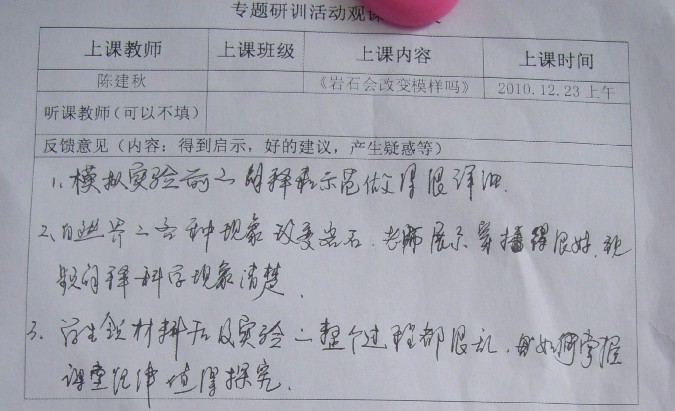 专题研训活动观课
上课教师 上课班级 上课内容 上课时间
陈建秋 《岩石会改变模样吗》 2010.12.23上午
听课教师(可以不填)
反馈意见(内容:得到启示,好的建议,产生疑惑等)
1、模拟实验前二 解释和示范做得很详细.
2、自然界二各种现象改变岩石.老师展示 穿插得很好,视
频解释科学现象清楚.
3、学生领材料后及实验二整个过程都很乱, 如何掌握
课堂纪律值得探究.